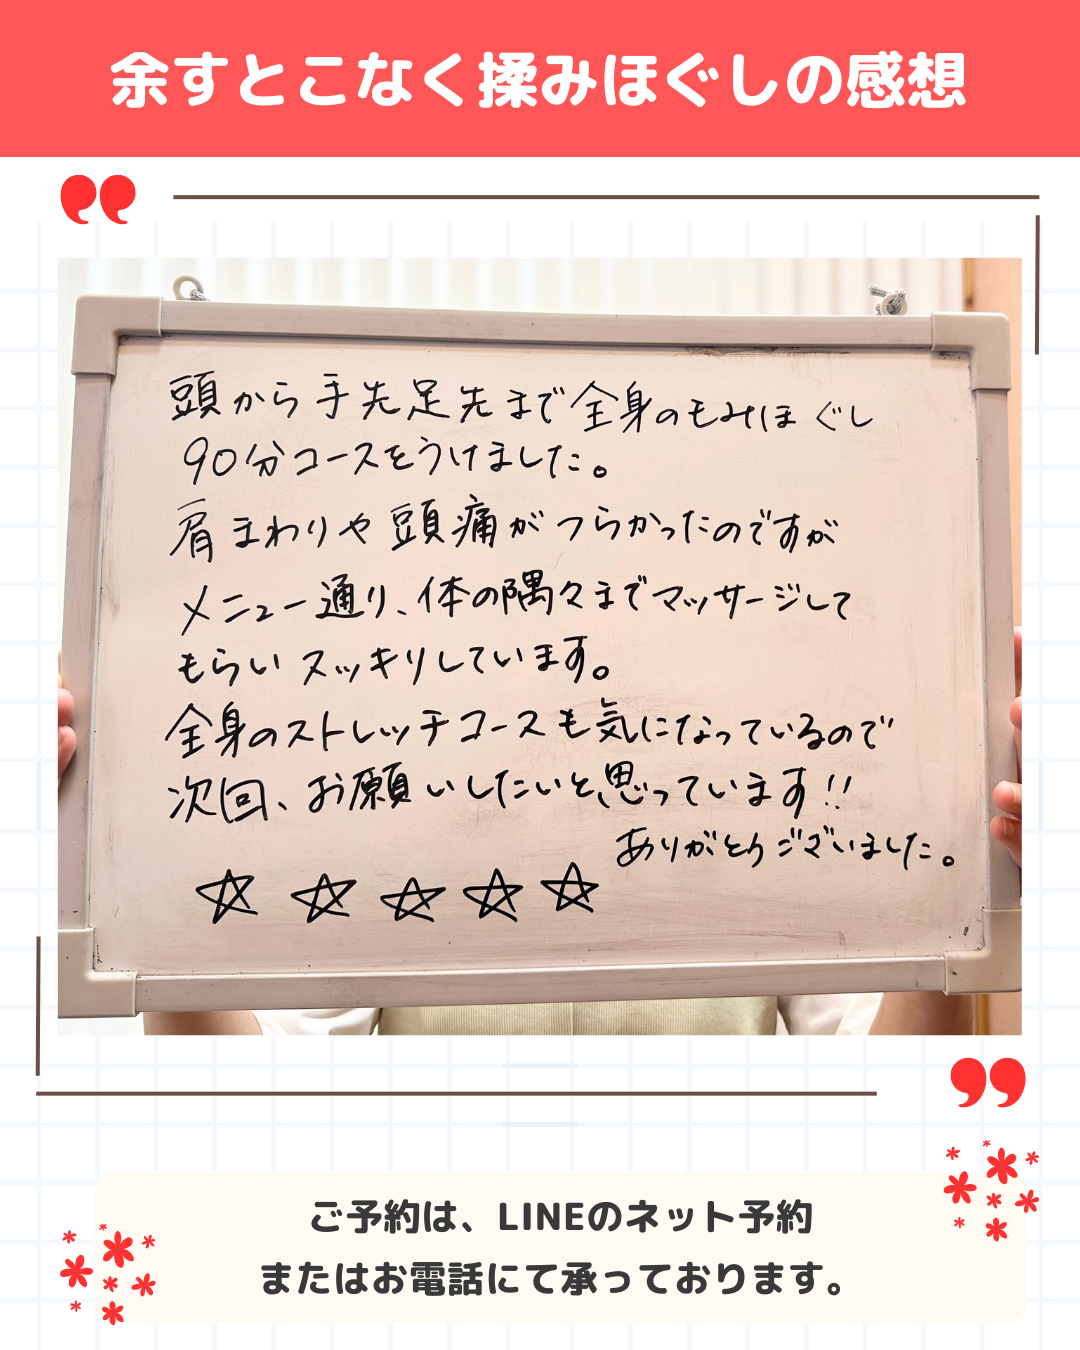 余すとこなく揉みほぐしの感想
頭から手先足先まで全身のもみほぐし
90分コースをうけました。
肩まわりや頭痛がつらかったのですが
メニュー通り、体の隅々までマッサージして
もらいスッキリしています。
全身のストレッチコースも気になっているので
次回、お願いしたいと思っています!!
ありがとうございました。
☆☆☆☆☆
ご予約は、LINEのネット予約
またはお電話にて承っております。